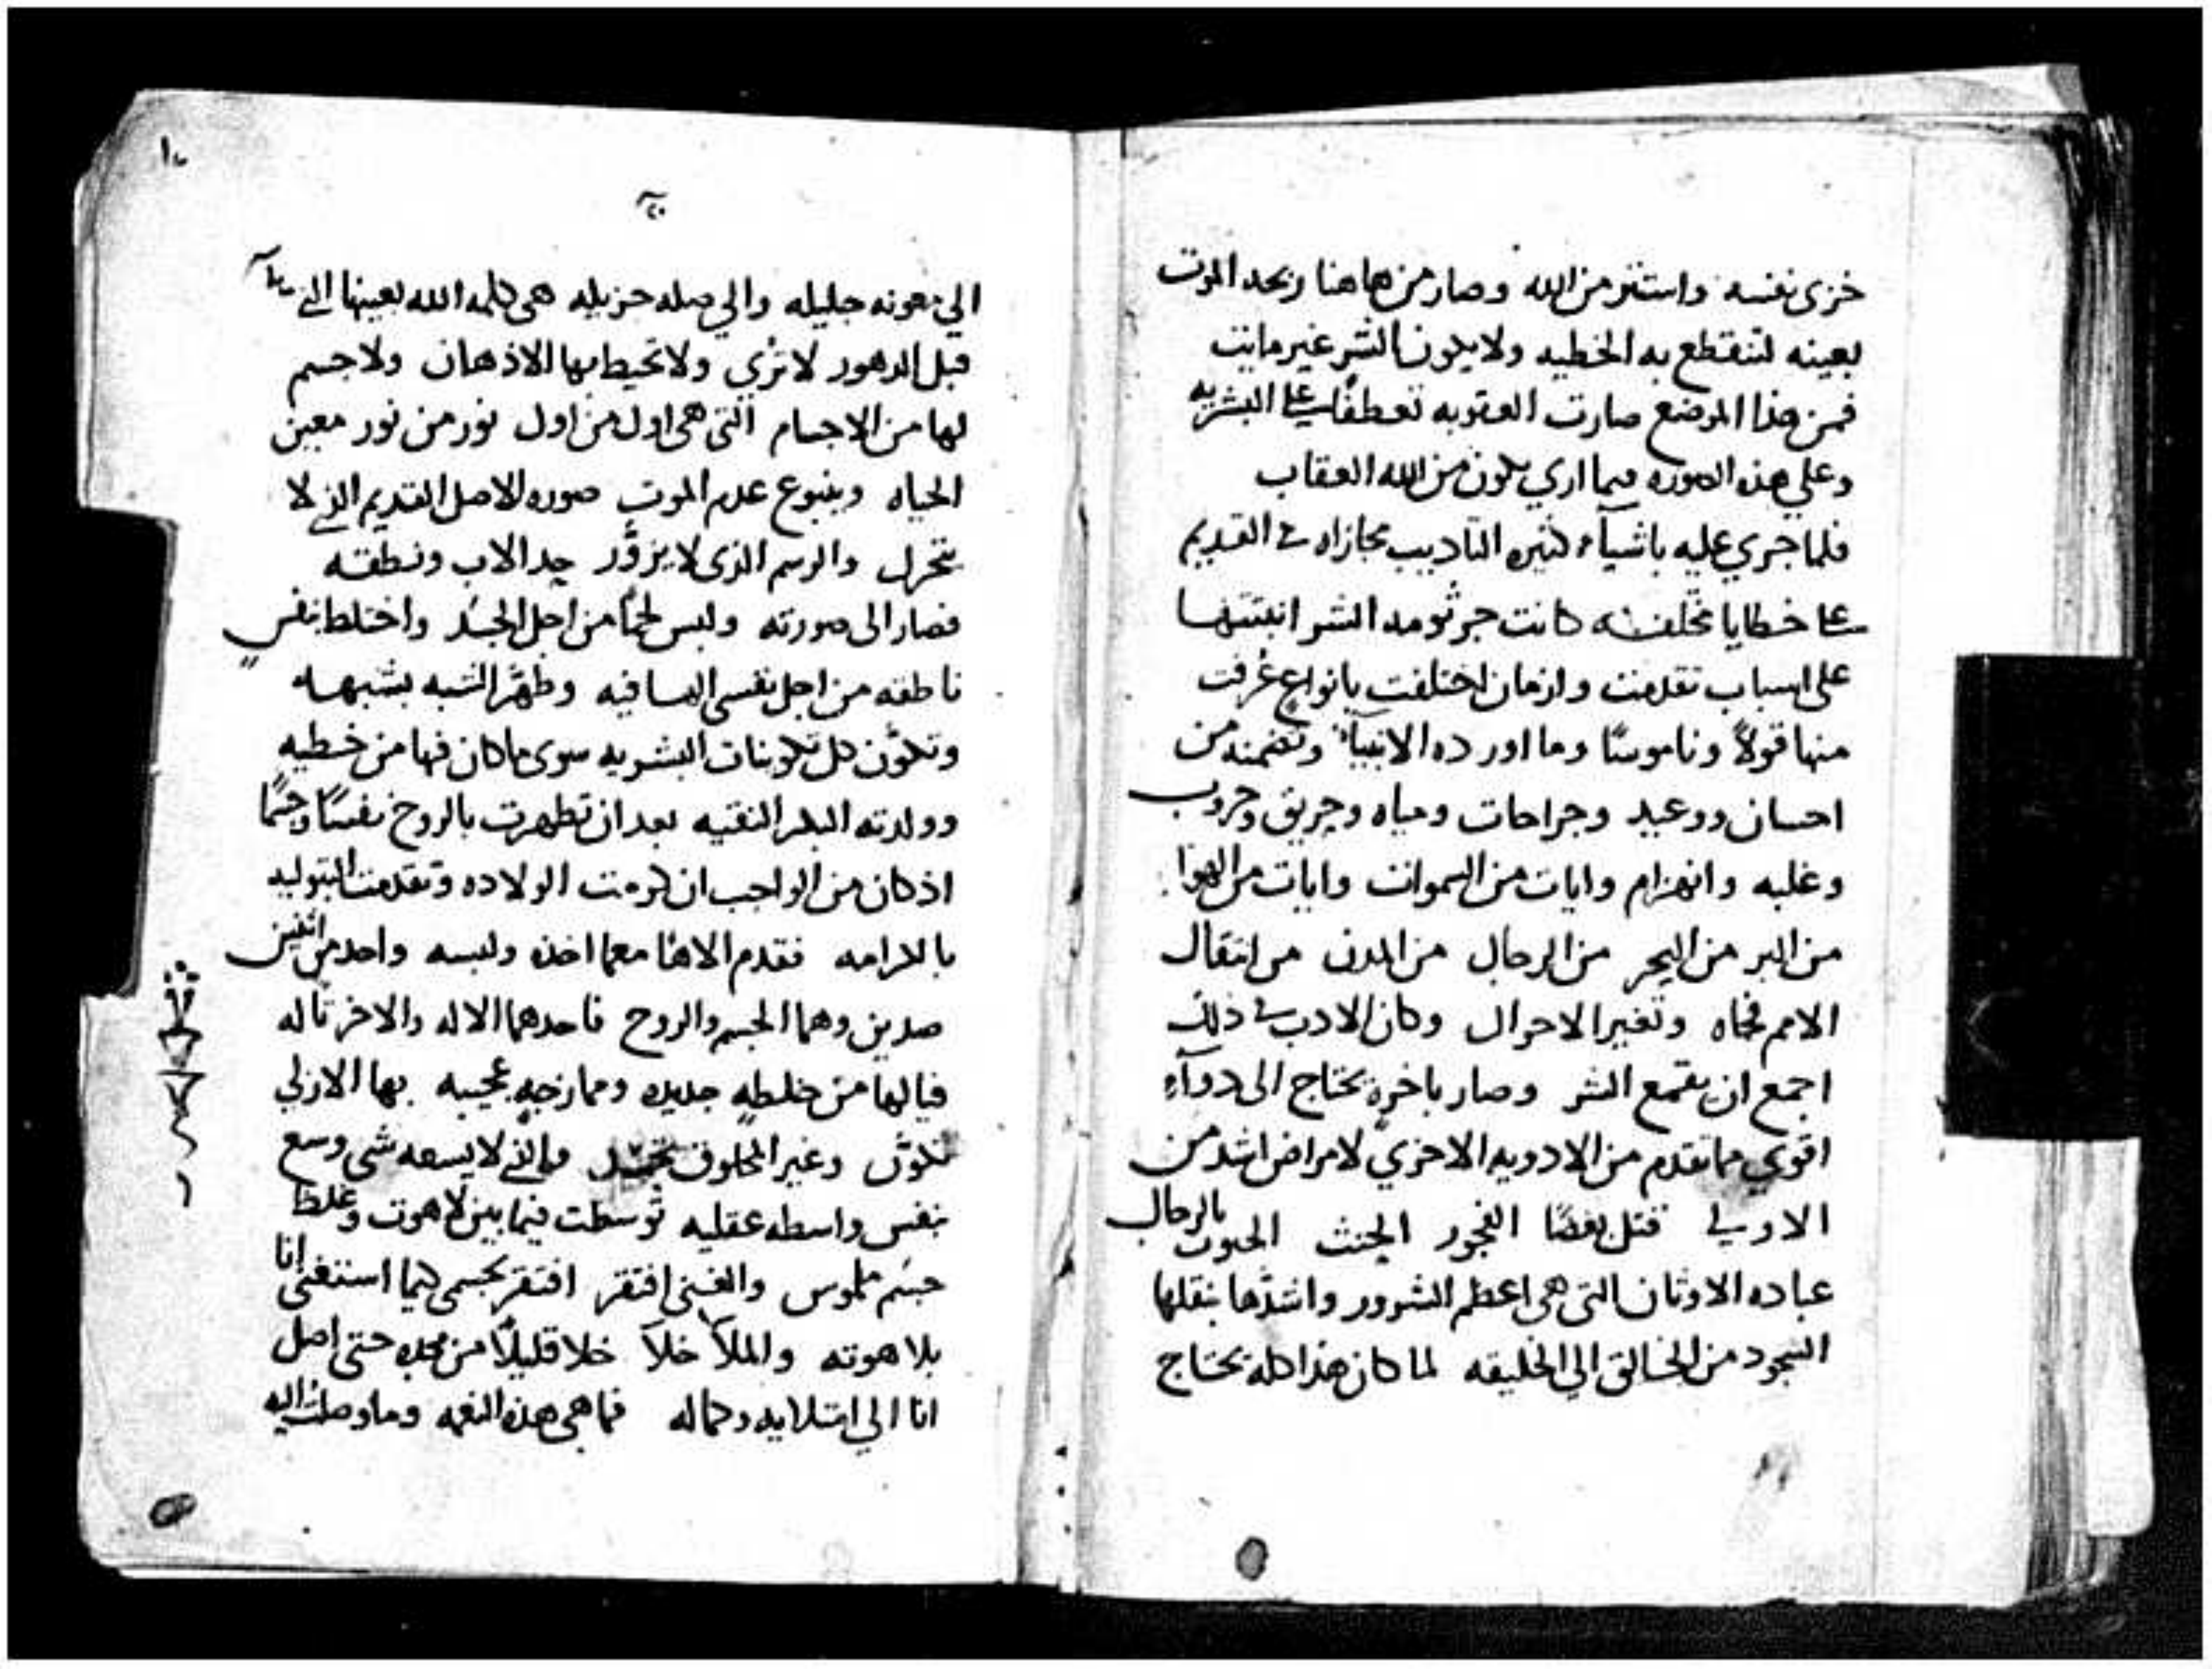 خزى نفسه واستتر من الله وصار من هاهنا ربحه الموت
بعينه لتنقطع به الخطيه ولا يكون الشر غير مايت
فمن هذا الموضع صارت العقوبه تعطفًا على البشريه
وعلي هذه الصوره فيما اري يكون من الله العقاب
فلما جري عليه باشيآء كثيره التاديب مجازاه في القديم
على خطايا مختلفه كانت جرثومه الشر انبتتها
على اسباب تقدمت وازمان اختلفت بانواع عُرفت
منها قولاً وناموسًا وما اورده الانبيآء وتضمنه من
احسان ووعيد وجراحات ومياه وحريق وحروب
وغلبه وانهزام وايات من السموات وايات من الهوا
من البر من البحر من الرجال من المدن من انتقال
الامم فجاه وتغير الاحوال وكان الادب في ذلك
اجمع ان يقمع الشر وصار باخرةٍ يحتاج الى دوآءٍ
اقوي مما تقدم من الادويه الاخري لامراض اشد من
الاولي قتل بعضًا الفجور الحنث الجنون بالرجال
عباده الاوثان التى هى اعظم الشرور واشدّها بنقلها
السجود من الخالق الي الخليقه لما كان هذا كله يحتاج
١٠
الي معونه جليله والي صله جزيله هى كلمه الله بعينها التي
قبل الدهور لا تُرى ولا تحيط بها الاذهان ولا جسم
لها من الاجسام التى هى اول من اول نور من نور معين
الحياه وينبوع عدم الموت صوره الاصل القديم الذي لا
يتحرك والرسم الذى لا يزوَّر حد الاب ونطقه
فصار الى صورته ولبس لحمًا من اجل الجسَد واختلط بنفسٍ
ناطقه من اجل نفسى الصافيه وطهَّر الشبه بشبهه
وتكوَّن كل تكوينات البشريه سوى ما كان فيها من خطيه
وولدته البكر النقيه بعد ان تطهرت بالروح نفسًا وجسمًا
اذ كان من الواجب ان كرمت الولاده وتقدمت البتوليه
بالكرامه فتقدم الاهًا معما اخذه ولبسه واحد من اثنين
ضدين وهما الجسم والروح فاحدهما الاله والاخر تاله
فيا لها من خلطهٍ جديده وممازجهٍ عجيبه بها الازلي
تكوَّن وغير المخلوق تجسد والذي لا يسعه شى وسع
بنفس واسطه عقليه توسطت فيما بين لاهوت وغلظ
جسَم ملموس والغنى افتقر افتقر بجسمى كيما استغنى انا
بلاهوته والملآ خلآ خلا قليلًا من مجده حتى اصل
انا الي امتلايه وكماله فما هى هذه النعمه وما وصلت اليه